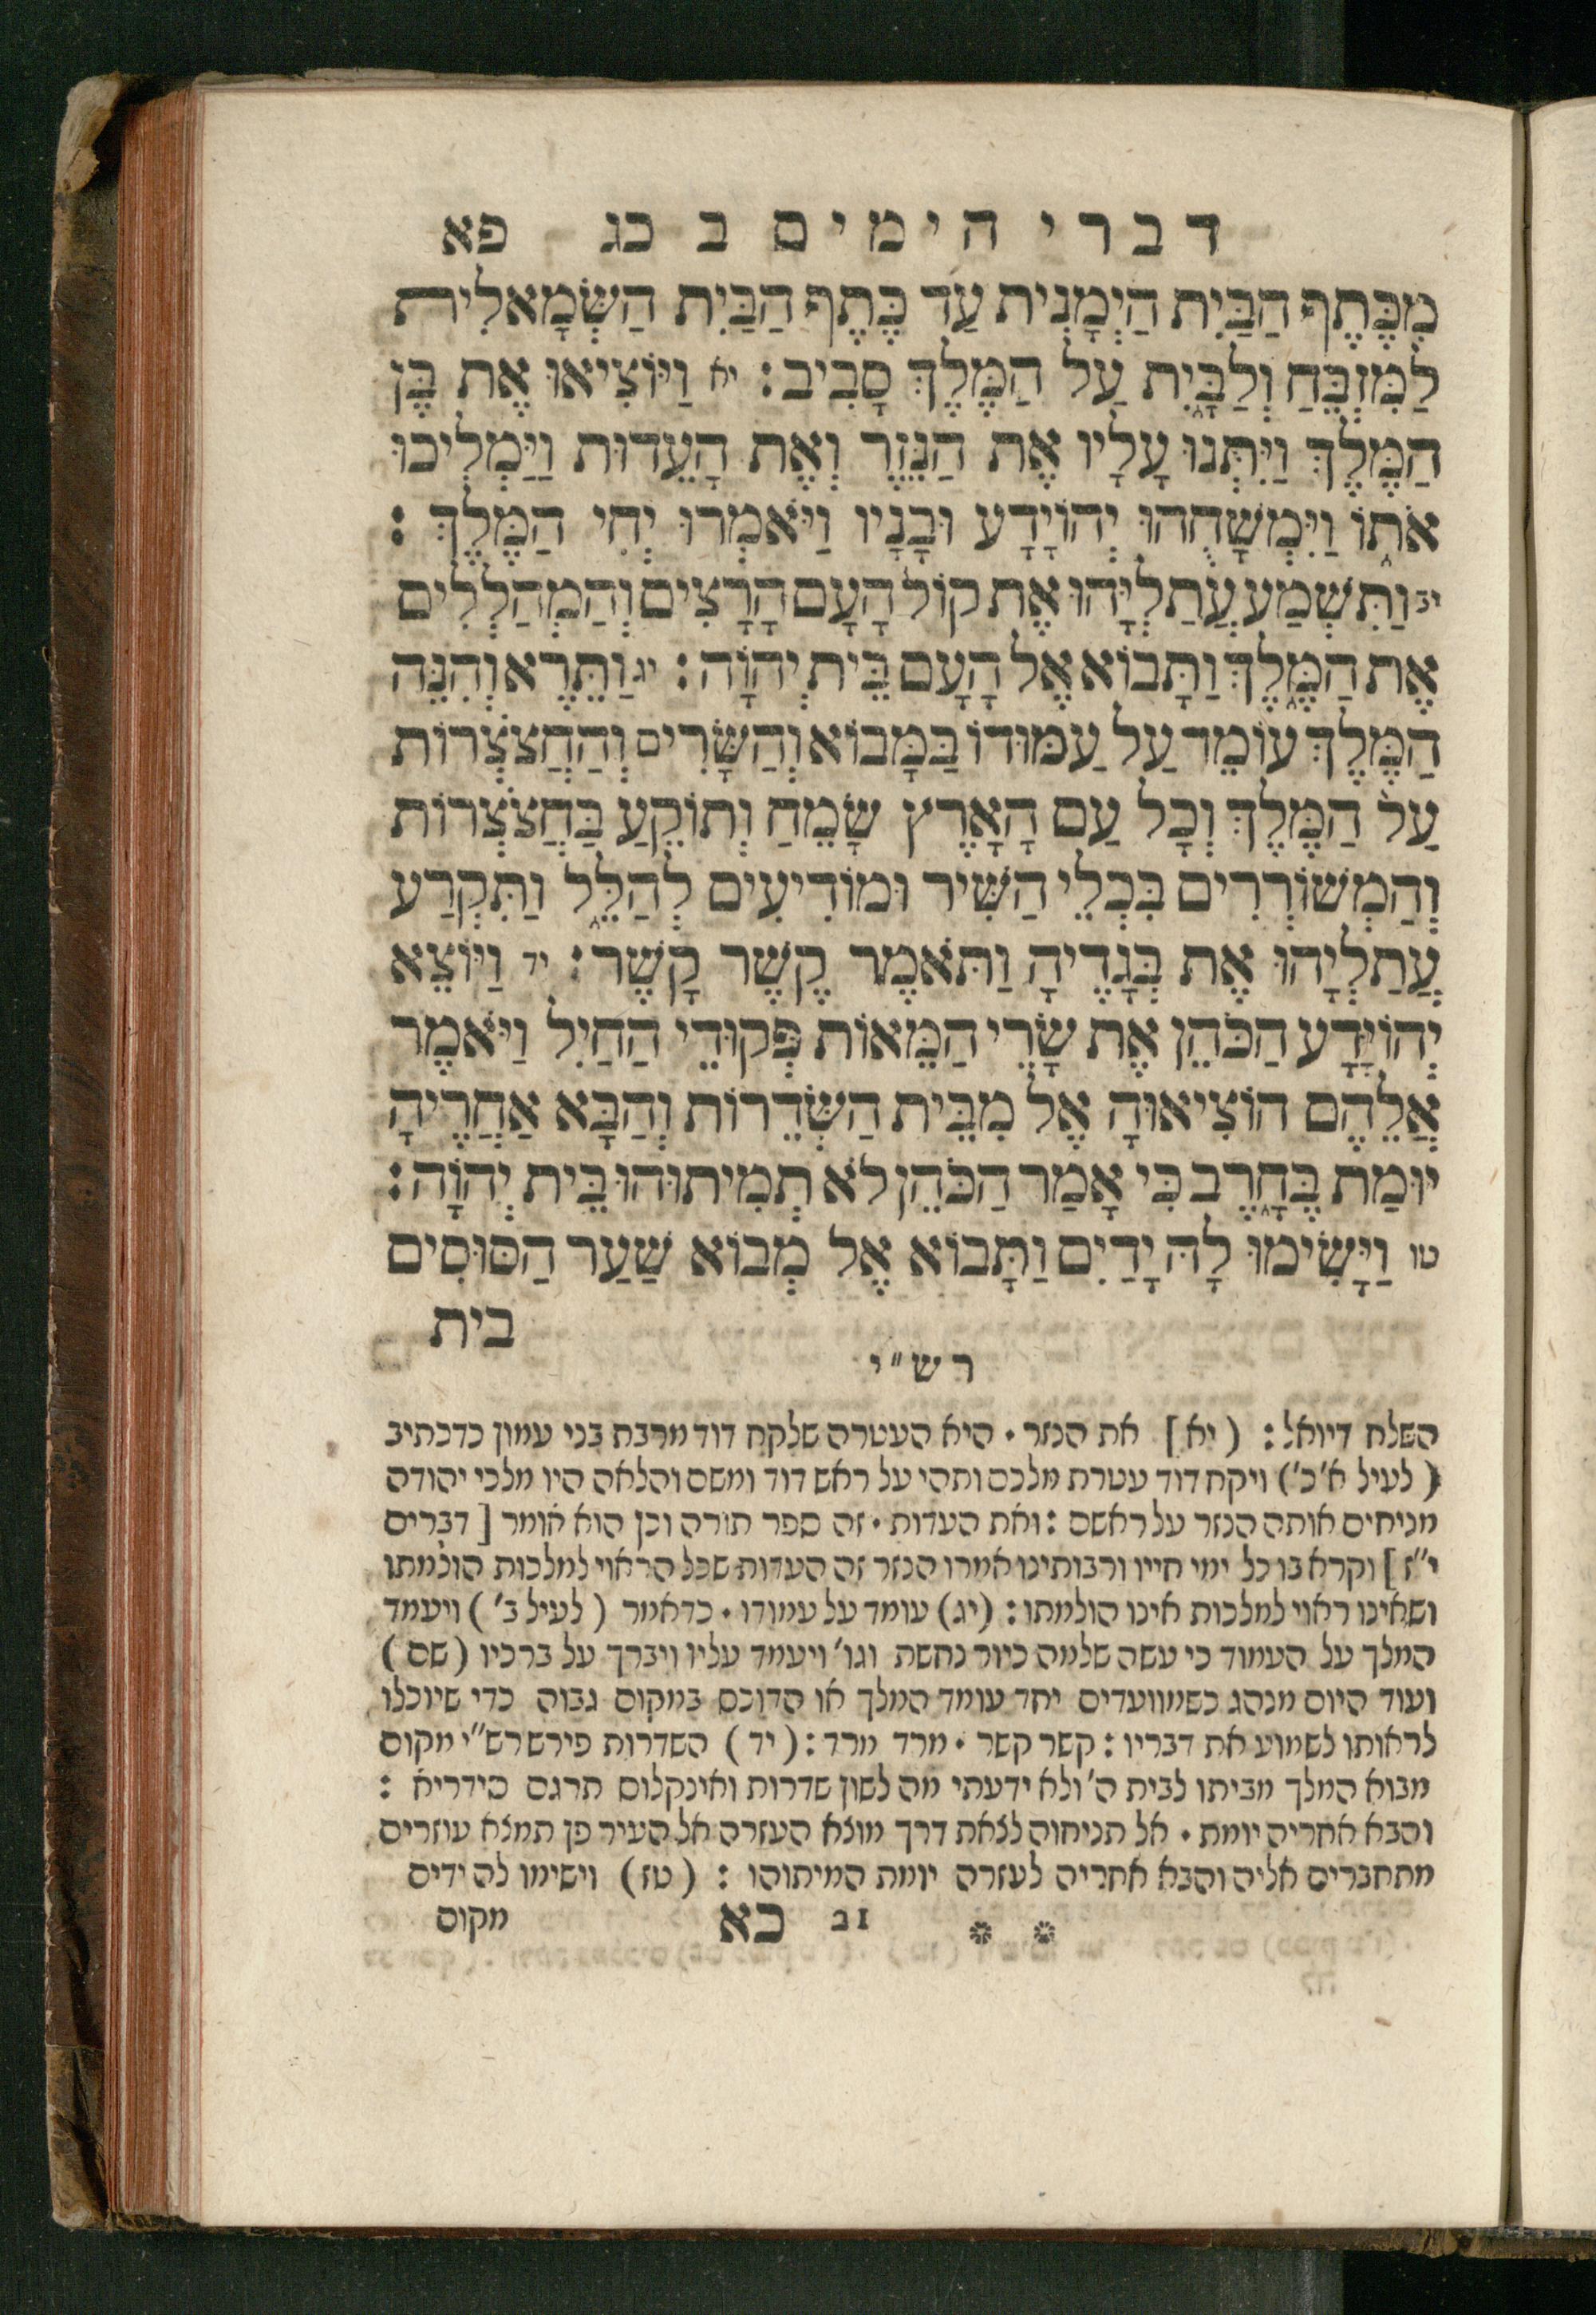 דברי הימים ב כג פא
מִכֶּתֶף הַבַּיִת הַיְמָנִית עַד כֶּתֶף הַבַּיִת הַשְּׂמָאלִית
לַמִּזְבֵּחַ וְלַבָּיִת עַל הַמֶּלֶךְ סָבִיב׃ יא וַיּוֹצִיאוּ אֶת בֶּן
הַמֶּלֶךְ וַיִּתְּנוּ עָלָיו אֶת הַנֵּזֶר וְאֶת הָעֵדוּת וַיַּמְלִיכוּ
אֹתוֹ וַיִּמְשָׁחֻהוּ יְהוֹיָדָע וּבָנָיו וַיֹּאמְרוּ יְחִי הַמֶּלֶךְ׃
יב וַתִּשְׁמַע עֲתַלְיָהוּ אֶת קוֹל הָעָם הָרָצִים וְהַמְהַלְלִים
אֶת הַמֶּלֶךְ וַתָּבוֹא אֶל הָעָם בֵּית יְהוָֹה׃ יג וַתֵּרֶא וְהִנֵּה
הַמֶּלֶךְ עוֹמֵד עַל עַמּוּדוֹ בַּמָּבוֹא וְהַשָּׂרִים וְהַחֲצֹצְרוֹת
עַל הַמֶּלֶךְ וְכָל עַם הָאָרֶץ שָׂמֵחַ וְתוֹקֵעַ בַּחֲצֹצְרוֹת
וְהַמְשׁוֹרְרִים בִּכְלֵי הַשִּׁיר וּמוֹדִיעִים לְהַלֵּל וַתִּקְרַע
עֲתַלְיָהוּ אֶת בְּגָדֶיהָ וַתֹּאמֶר קֶשֶׁר קָשֶׁר׃ יד וַיּוֹצֵא
יְהוֹיָדָע הַכֹּהֵן אֶת שָׂרֵי הַמֵּאוֹת פְּקוּדֵי הַחַיִל וַיֹּאמֶר
אֲלֵהֶם הוֹצִיאוּהָ אֶל מִבֵּית הַשְּׂדֵרוֹת וְהַבָּא אַחֲרֶיהָ
יוּמַת בֶּחָרֶב כִּי אָמַר הַכֹּהֵן לֹא תְמִיתוּהוּ בֵּית יְהוָֹה׃
טו וַיָּשִׂימוּ לָהּ יָדַיִם וַתָּבוֹא אֶל מְבוֹא שַׁעַר הַסּוּסִים
בית
רש״י
השלח דיואל : (יא] את הנזר • היא העטרה שלקח דוד מרבת בני עמון כדכתיב
(לעיל א׳ כ׳) ויקח דוד עטרת מלכם ותהי על ראש דוד ומשם והלאה היו מלכי יהודה
מניחים אותה הנזר על ראשם : ואת העדות • זה ספר תורה וכן הוא אומר [דברים
י״ז] וקרא בו כל ימי חייו ורבותינו אמרו הנזר זה העדות שכל הראוי למלכות הולמתו
ושאינו ראוי למלכות אינו הולמתו : (יג) עומד על עמודו • כדאמר (לעיל ב׳) ויעמד
המלך על העמוד כי עשה שלמה כיור נחשת וגו׳ ויעמד עליו ויברך על ברכיו (שם)
ועוד היום מנהג כשמוועדים יחד עומד המלך או הדוכס במקום גבוה כדי שיוכלו
לראותו לשמוע את דבריו : קשר קשר • מרד מרד : (יד) השדרות פירש רש״י מקום
מבוא המלך מביתו לבית ה׳ ולא ידעתי מה לשון שדרות ואינקלוס תרגם סידריא :
והבא אחריה יומת • אל תניחוה לצאת דרך מוצא העזרה אל העיר פן תמצא עוזרים
מתחברים אליה והבא אחריה לעזרה יומת המיתוהו : (טז) וישימו לה ידים
** ב1 כא מקום